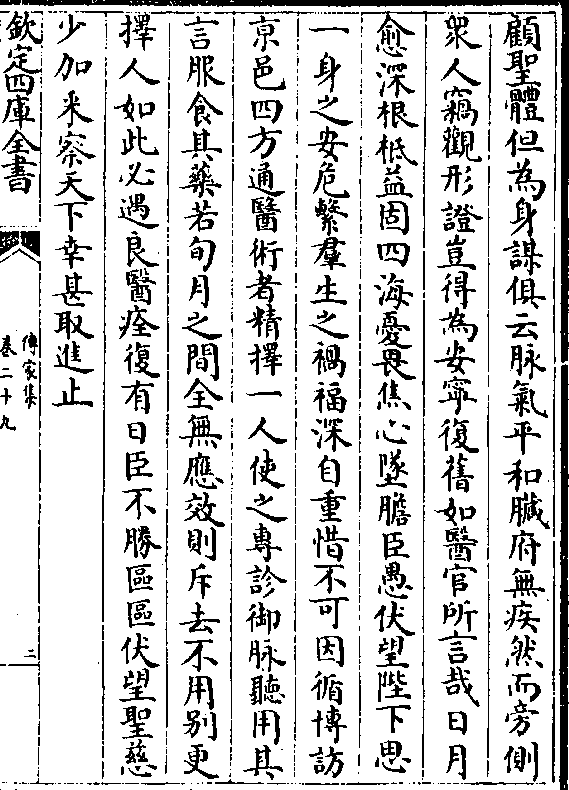 顧聖體但為身謀俱云脉氣平和臓府無疾然而旁側
衆人竊觀形證豈得為安寧復舊如醫官所言哉日月
愈深根柢益固四海憂畏焦心墜膽臣愚伏望陛下思
一身之安危繫羣生之禍福深自重惜不可因循博訪
京邑四方通醫術者精擇一人使之專診御脉聽用其
言服食其藥若旬月之間全無應效則斥去不用别更
擇人如此必遇良醫痊復有日臣不勝區區伏望聖慈
少加采察天下幸甚取進止
欽定四庫全書
傳家集
卷二十九
三